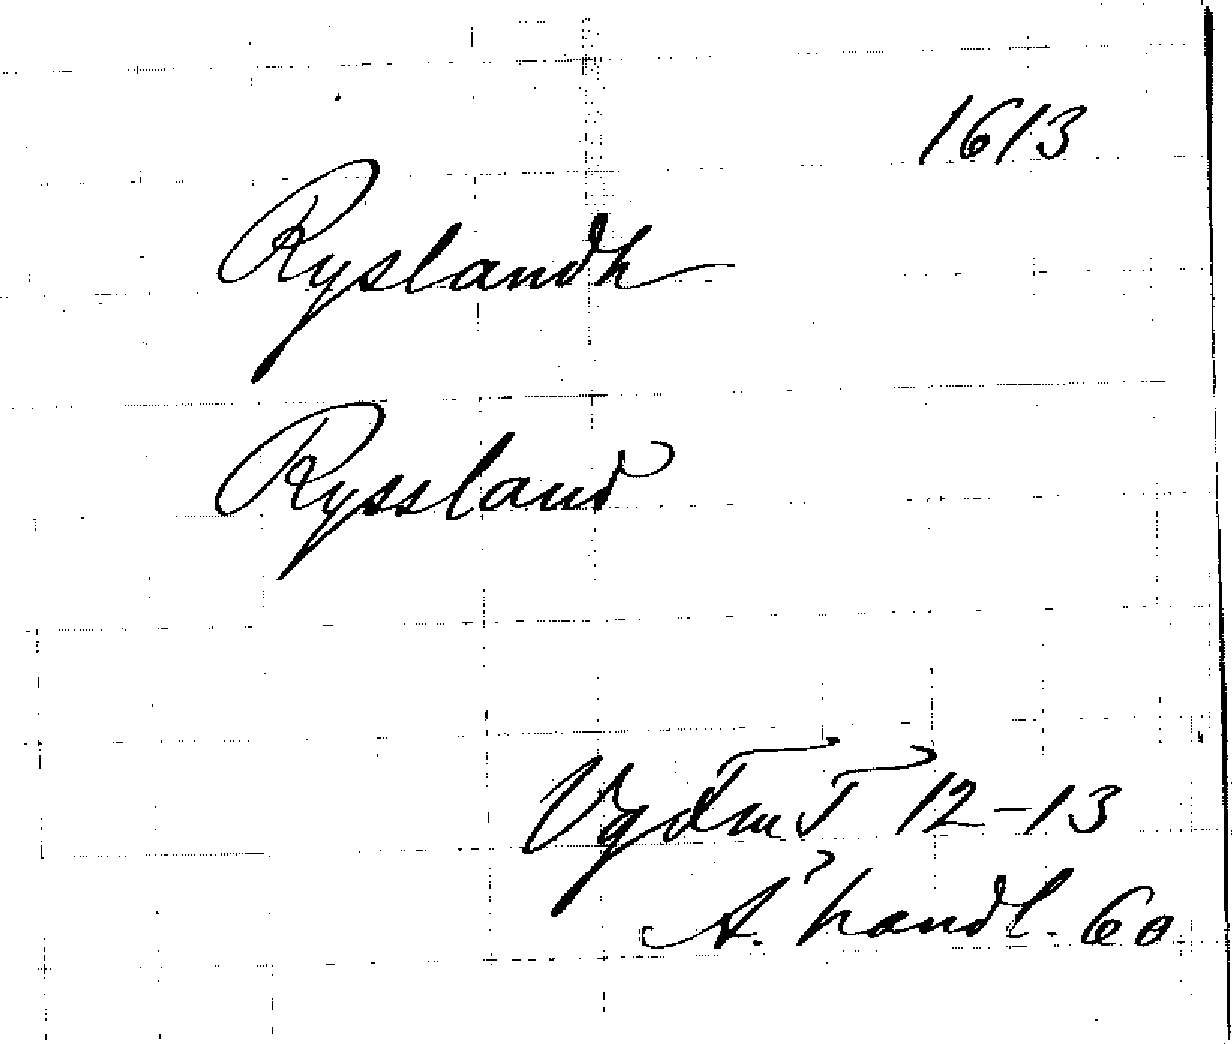 1613
Ryslandh
Ryssland
VgdTmT 12-13
Ä. handl. 60